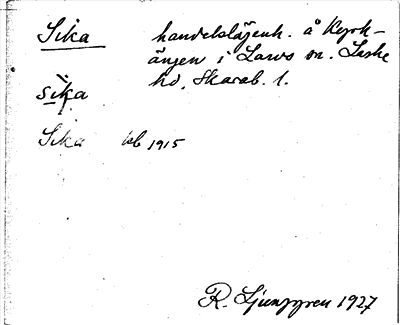 Sika handelslägenh. å Kyrk-
ängen i Larvs sn. Laske
hd, Skarab. l.
sika
Sika kb 1915
R. Ljunggren 1927